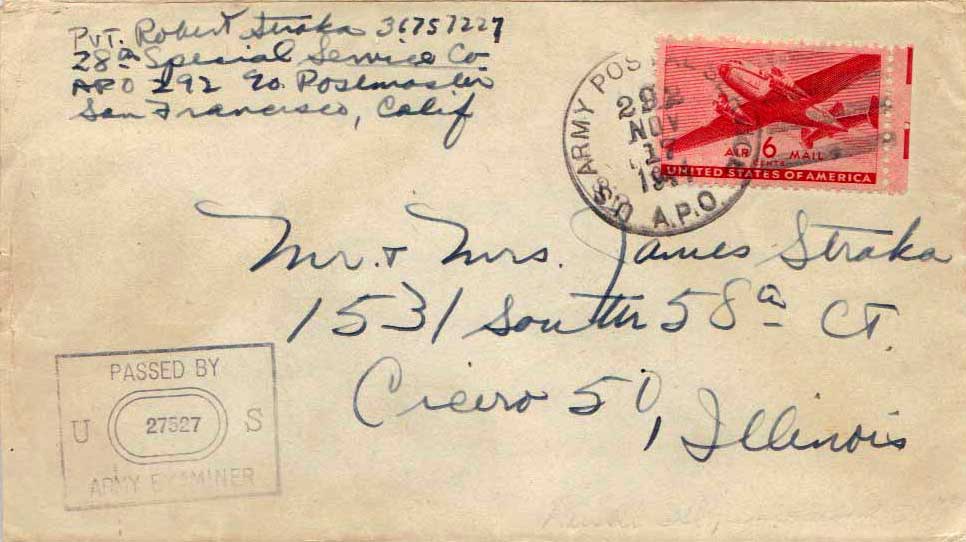 Pvt. Robert Straka 36757227
28th Special Service Co
APO 292 c/o Postmaster
San Francisco, Calif
U.S. ARMY POSTAL SERVICE
A.P.O.
NOV
17
AIR 6 MAIL
CENTS
UNITED STATES OF AMERICA
Mr. + Mrs. James Straka
1531 South 58th CT.
Cicero 50, Illinois
PASSED BY
U 27527 S
ARMY EXAMINER